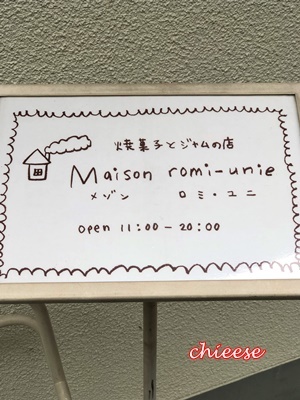 焼菓子とジャムの店
Maison romi-unie
メゾン ロミ・ユニ
open 11:00 - 20:00
chieese